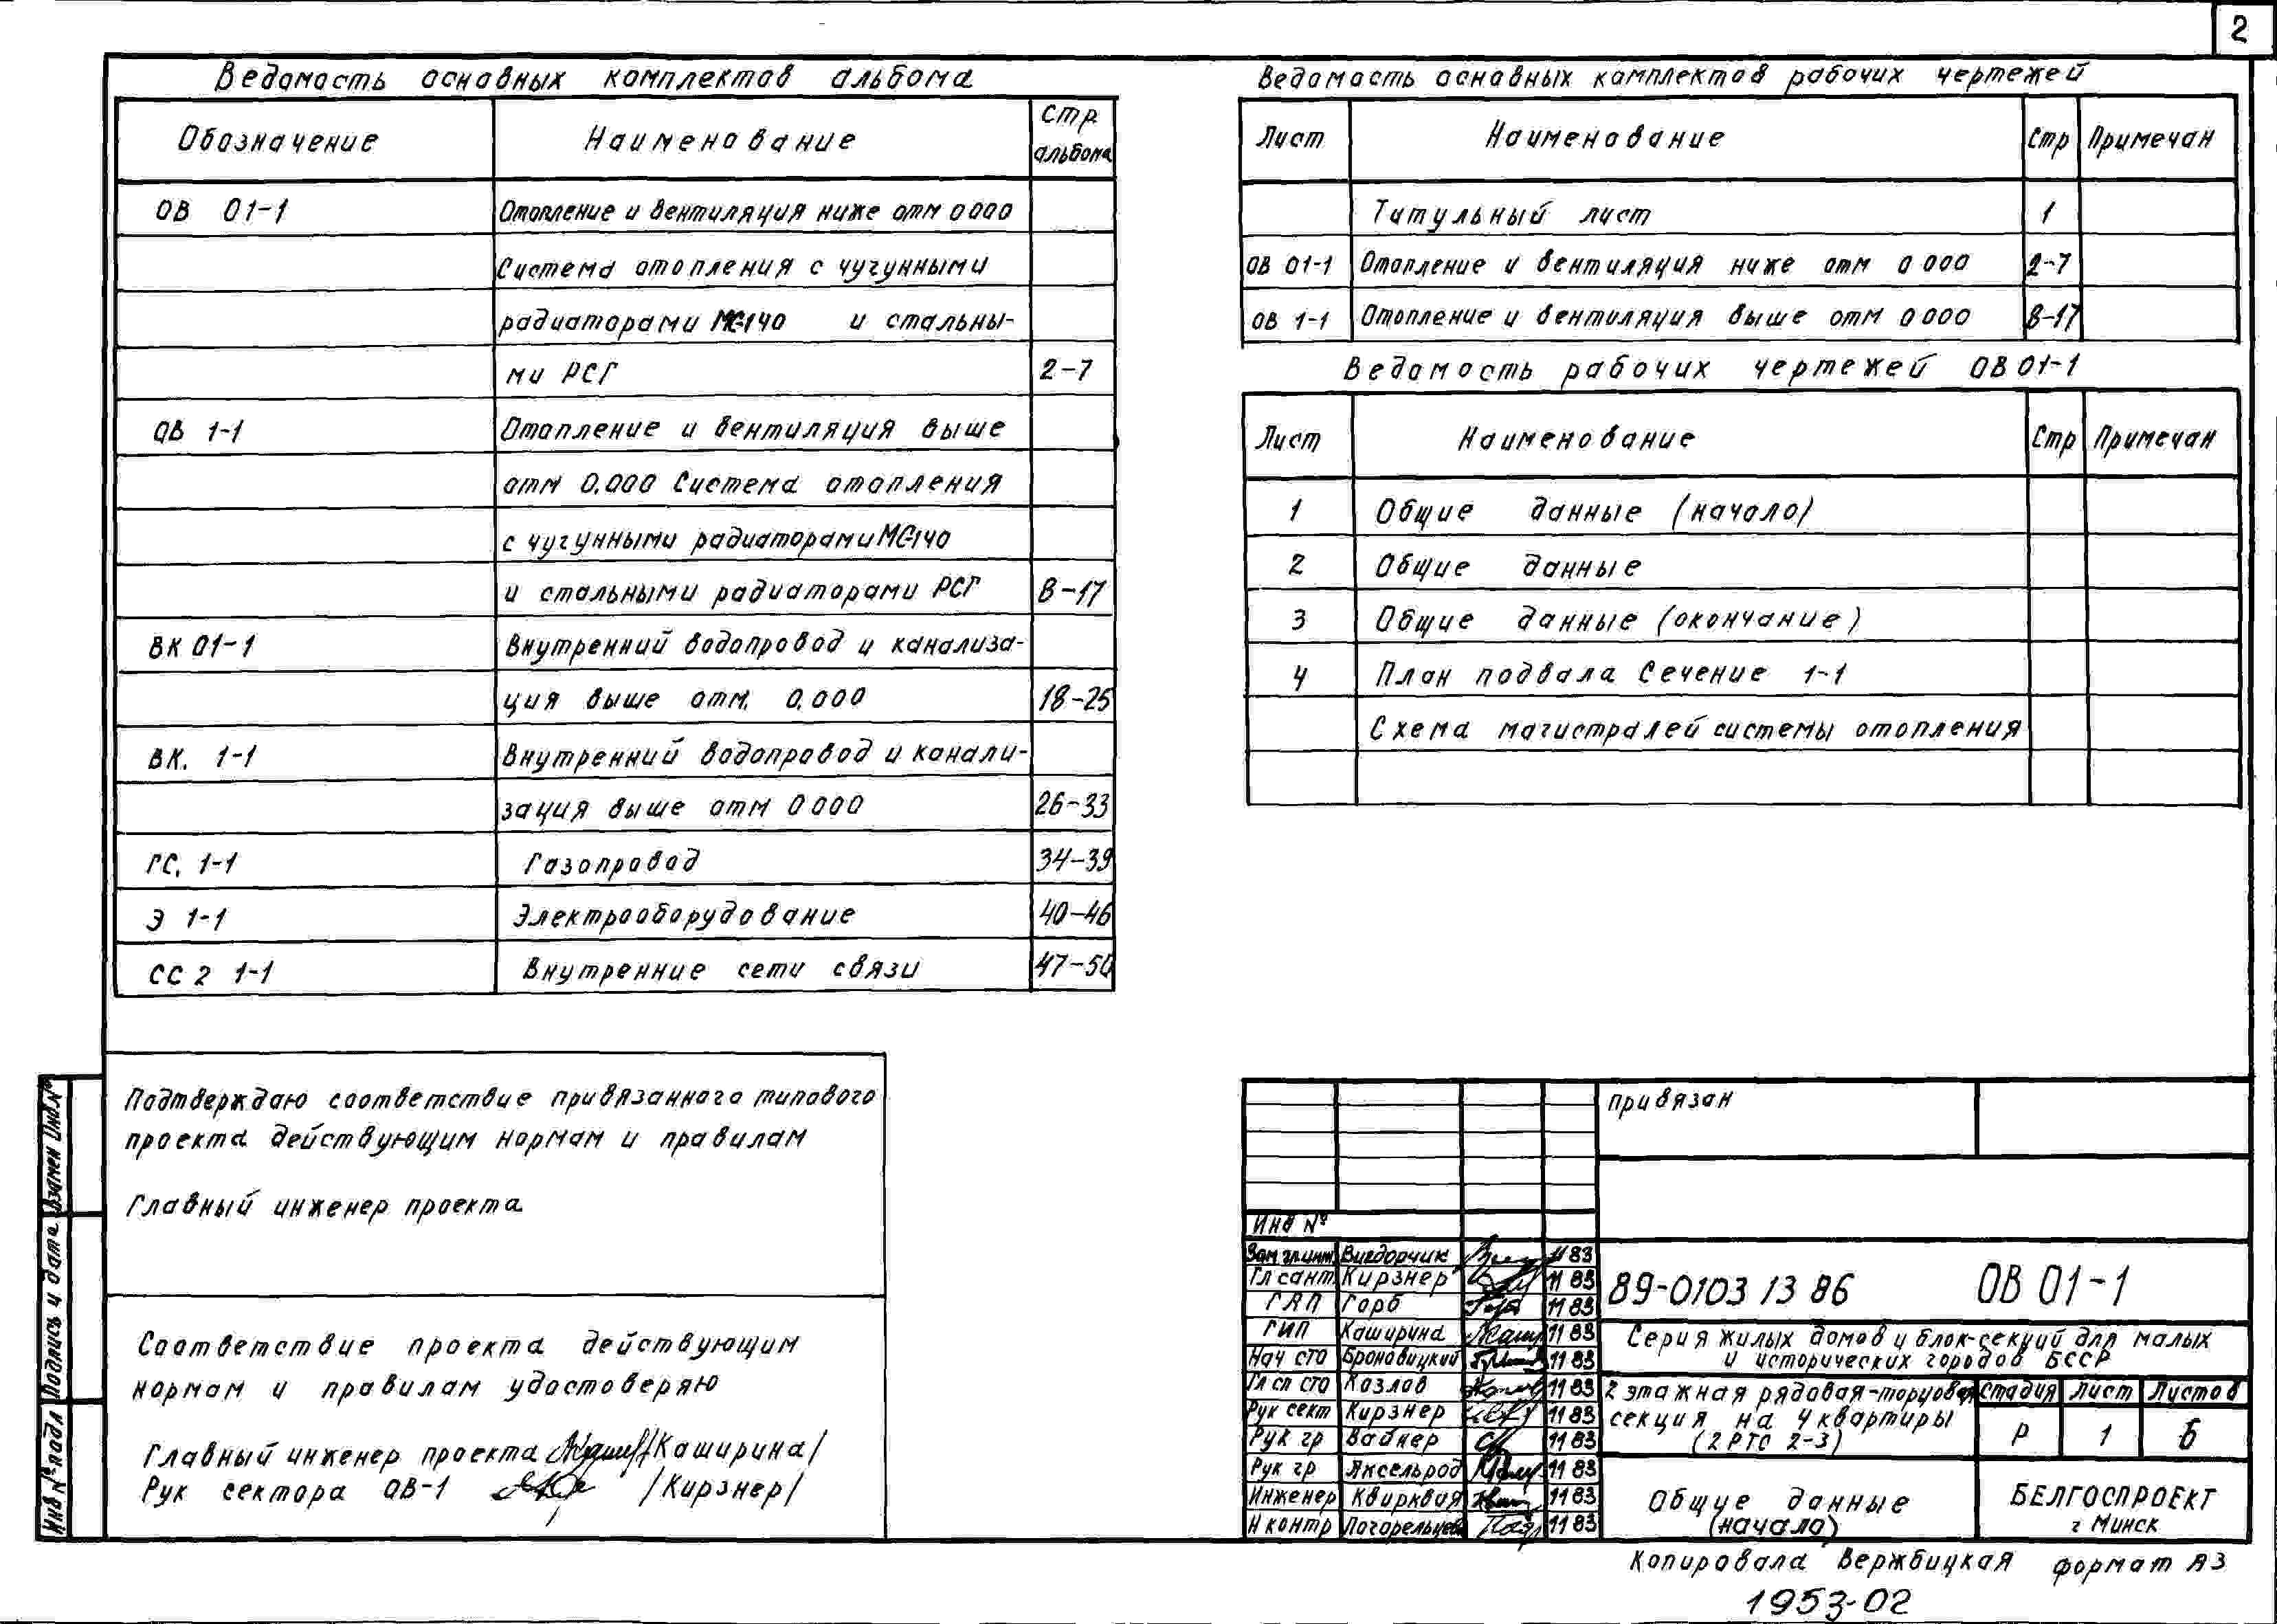 2
Ведомость основных комплектов альбома
Обозначение Наименование Стр альбома
ОВ 01-1 Отопление и вентиляция ниже отм 0000
Система отопления с чугунными
радиаторами МС-140 и стальны-
ми РСГ 2-7
ОВ 1-1 Отопление и вентиляция выше
отм 0.000 Система отопления
с чугунными радиаторами МС-140
и стальными радиаторами РСГ 8-17
ВК 01-1 Внутренний водопровод и канализа-
ция выше отм. 0.000 18-25
ВК. 1-1 Внутренний водопровод и канали-
зация выше отм 0000 26-33
ГС. 1-1 Газопровод 34-39
Э 1-1 Электрооборудование 40-46
СС 2 1-1 Внутренние сети связи 47-50
Ведомость основных комплектов рабочих чертежей
Лист Наименование Стр Примечан
Титульный лист 1
ОВ 01-1 Отопление и вентиляция ниже отм 0 000 2-7
ОВ 1-1 Отопление и вентиляция выше отм 0000 8-17
Ведомость рабочих чертежей ОВ 01-1
Лист Наименование Стр Примечан
1 Общие данные (начало)
2 Общие данные
3 Общие данные (окончание)
4 План подвала Сечение 1-1
Схема магистралей системы отопления
Подтверждаю соответствие привязанного типового
проекта действующим нормам и правилам
Главный инженер проекта
Соответствие проекта действующим
нормам и правилам удостоверяю
Главный инженер проекта /Каширина/
Рук сектора ОВ-1 /Кирзнер/
Инв № подл Подпись и дата Взамен Инв №
привязан
Инв №
Зам гл.инж. Вигдорчик 11 83
Гл сант. Кирзнер 11 83
ГАП Горб 11 83
ГИП Каширина 11 83
Нач сто Броновицкий 11 83
Гл сп сто Козлов 11 83
Рук сект Кирзнер 11 83
Рук гр Вайнер 11 83
Рук гр Аксельрод 11 83
Инженер Квирквая 11 83
Н контр Погорельцева 11 83
89-0103 13 86 ОВ 01-1
Серия жилых домов и блок-секций для малых
и исторических городов БССР
2 этажная рядовая-торцовая
секция на 4 квартиры
(2 РТС 2-3)
Стадия Лист Листов
Р 1 6
Общие данные
(начало)
БЕЛГОСПРОЕКТ
г Минск
Копировала Вержбицкая формат А3
1953-02